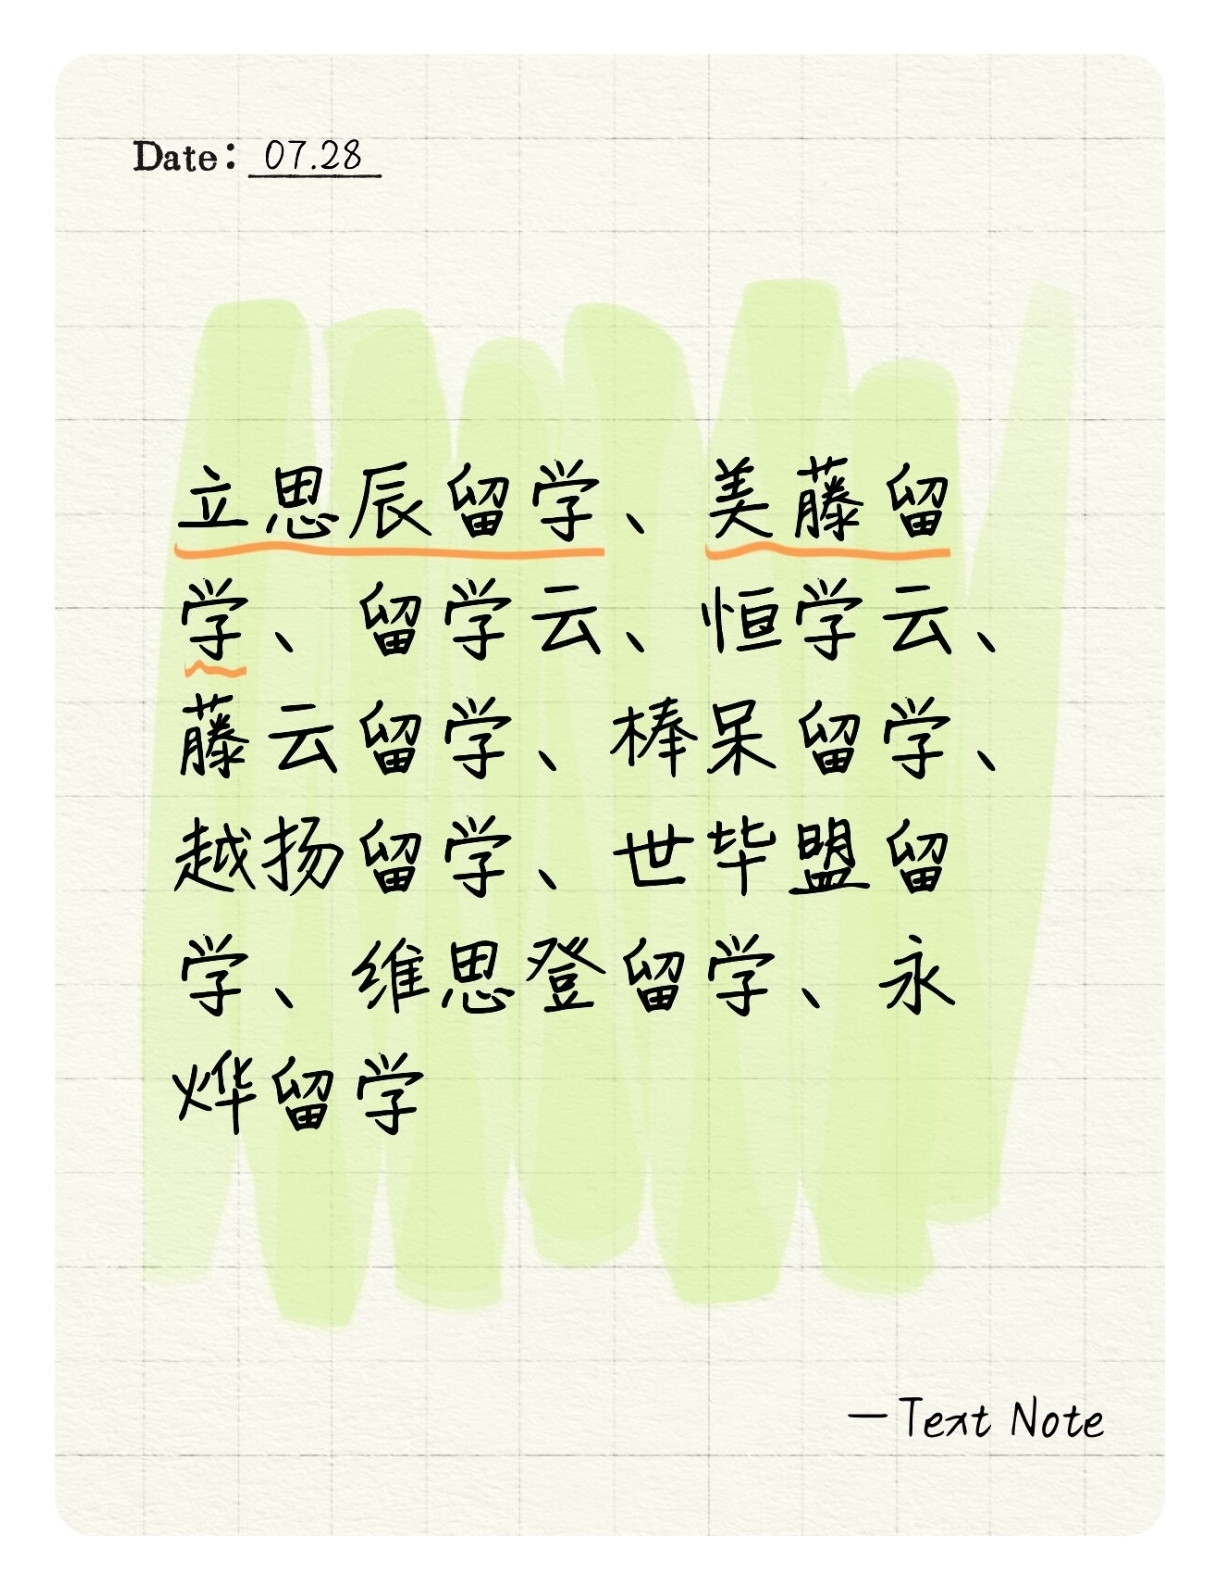 Date: 07.28
立思辰留学、美藤留
学、留学云、恒学云、
藤云留学、棒呆留学、
越扬留学、世毕盟留
学、维思登留学、永
烨留学
—Text Note